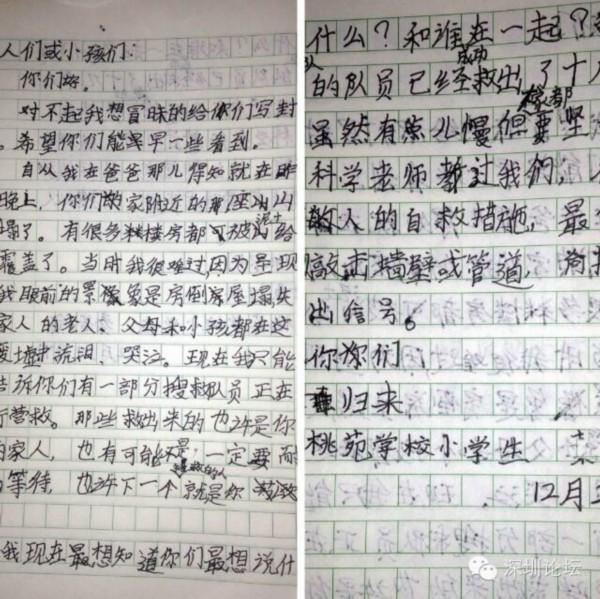 人们或小孩们：
你们好。
对不起我想冒昧的给你们写封
。希望你们能早早一些看到。
自从我在爸爸那儿得知就在昨
晚上，你们家附近的那座山
塌了。有很多楼房都被泥土给
覆盖了。当时我很难过,因为呈现
我眼前的景像象是房倒屋塌,失
家人的老人、父母和小孩都在这
废墟中流泪、哭泣。现在我只能
告诉你们有一部分搜救队员正在
行营救。那些救出来的也许是你
的家人，也有可能不是，一定要耐
等待，也许下一个就是你
我现在最想知道你们最想说什
什么？和谁在一起？
的队员已经成功救出了十几
虽然有点儿慢但要坚
科学老师教过我们：
人的自救措施，最
敲击墙壁或管道，
出信号。
你们
归来
桃苑学校小学生
12月
深圳论坛